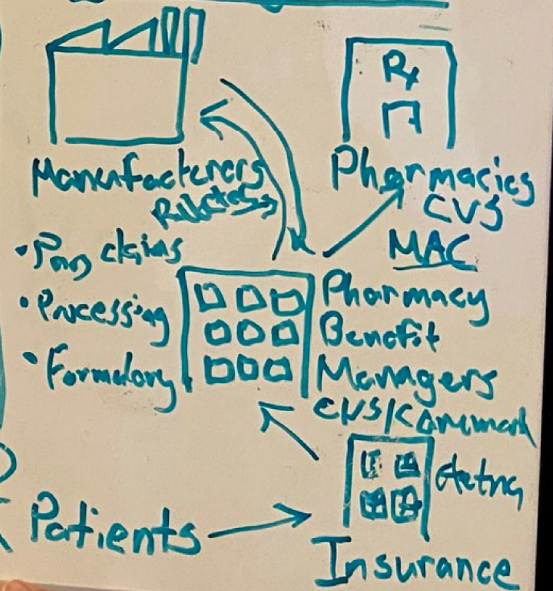 Rx
Manufacterers
Rebates
Pharmacies
CVS
MAC
• Pay claims
• Processing
• Formulary
Pharmacy
Benefit
Managers
CVS/Caremark
Aetna
Patients
Insurance